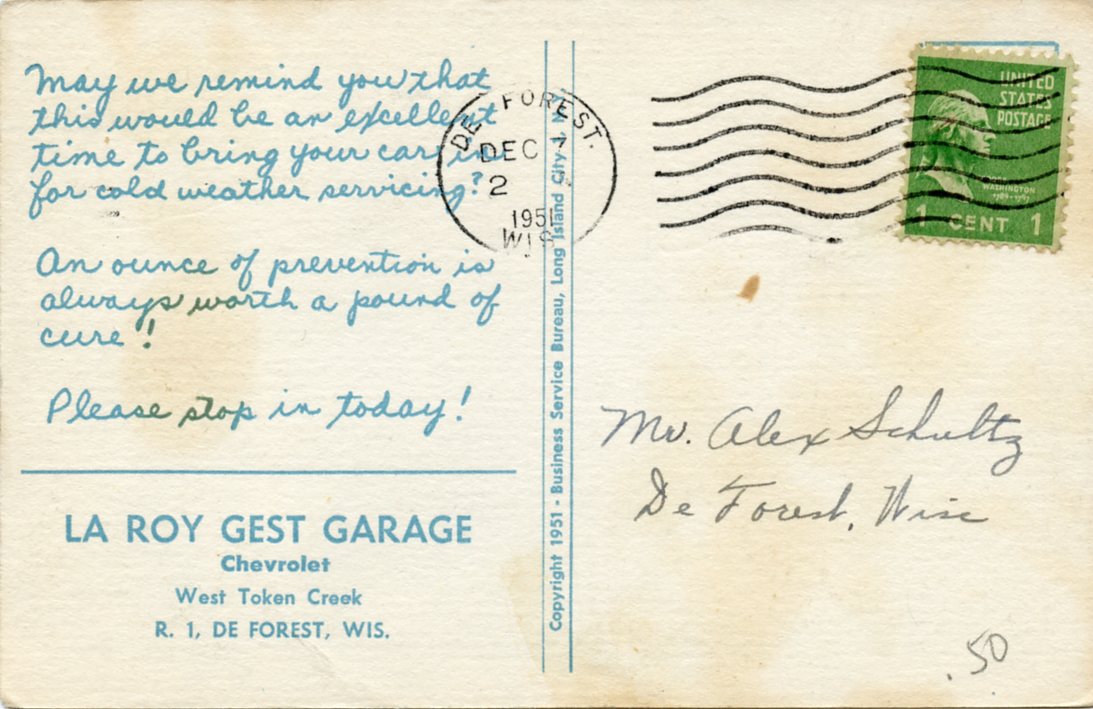 May we remind you that
this would be an excellent
time to bring your car in
for cold weather servicing?
An ounce of prevention is
always worth a pound of
cure!
Please stop in today!
LA ROY GEST GARAGE
Chevrolet
West Token Creek
R. 1, DE FOREST, WIS.
Copyright 1951 - Business Service Bureau, Long Island City 1, N.
DE FOREST.
DEC 7
2
1951
WIS
UNITED
STATES
POSTAGE
WASHINGTON
1789-1797
1 CENT 1
Mr. Alex Schultz
De Forest, Wisc
.50